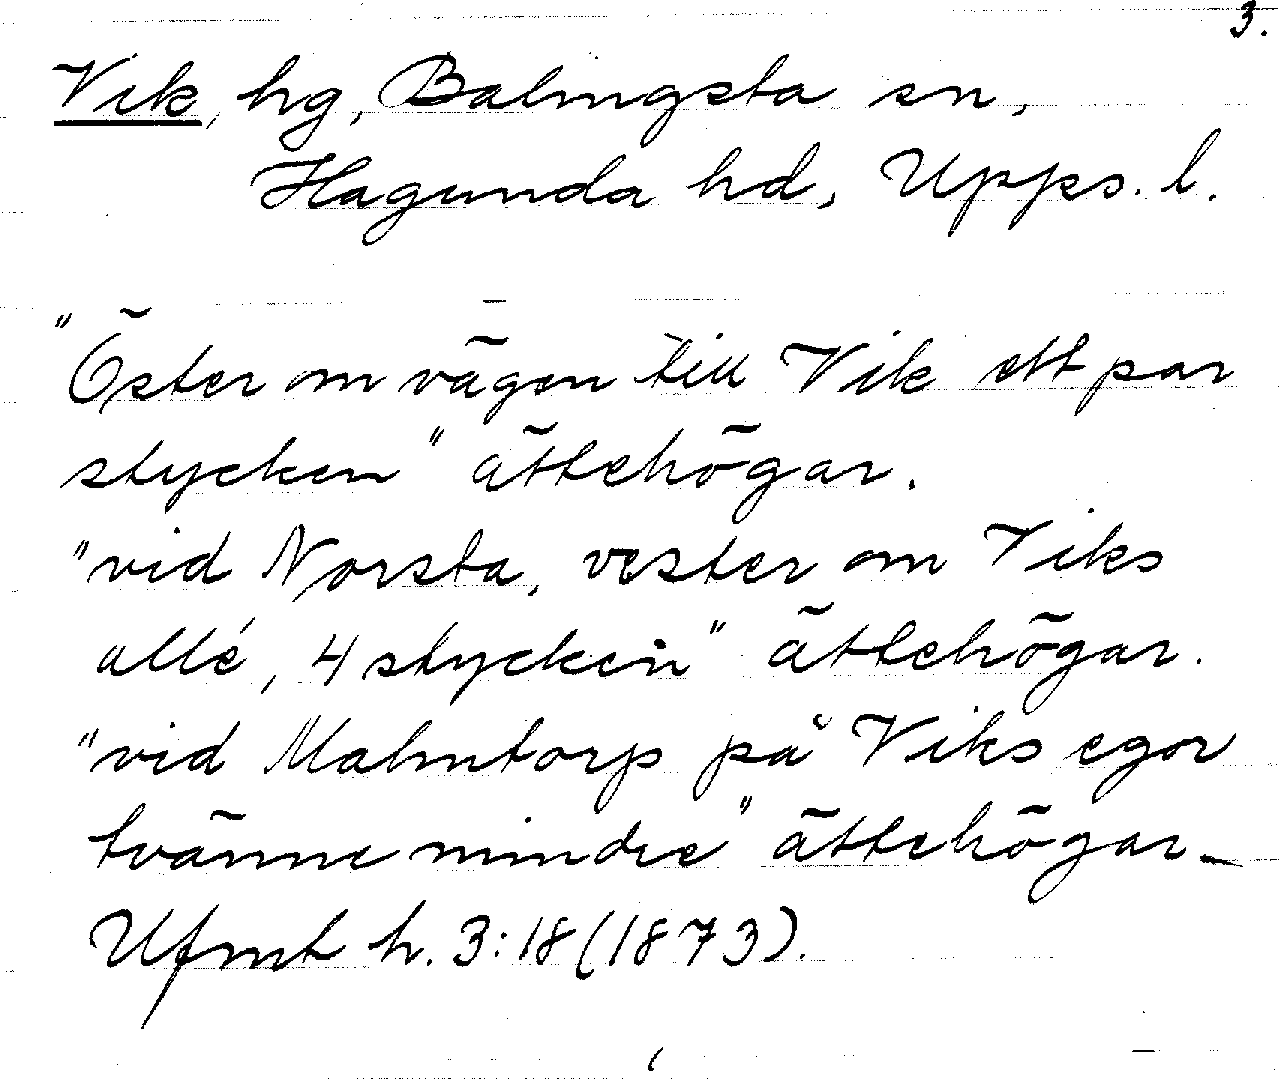 3.
Vik, hg, Balingsta sn,
Hagunda hd, Upps. l.
"Öster om vägen till Vik ett par
stycken" ättehögar.
"vid Norsta, vester om Viks
allé, 4 stycken" ättehögar.
"vid Malmtorp på Viks egor
tvänne mindre" ättehögar_
Ufmt h. 3:18 (1873).